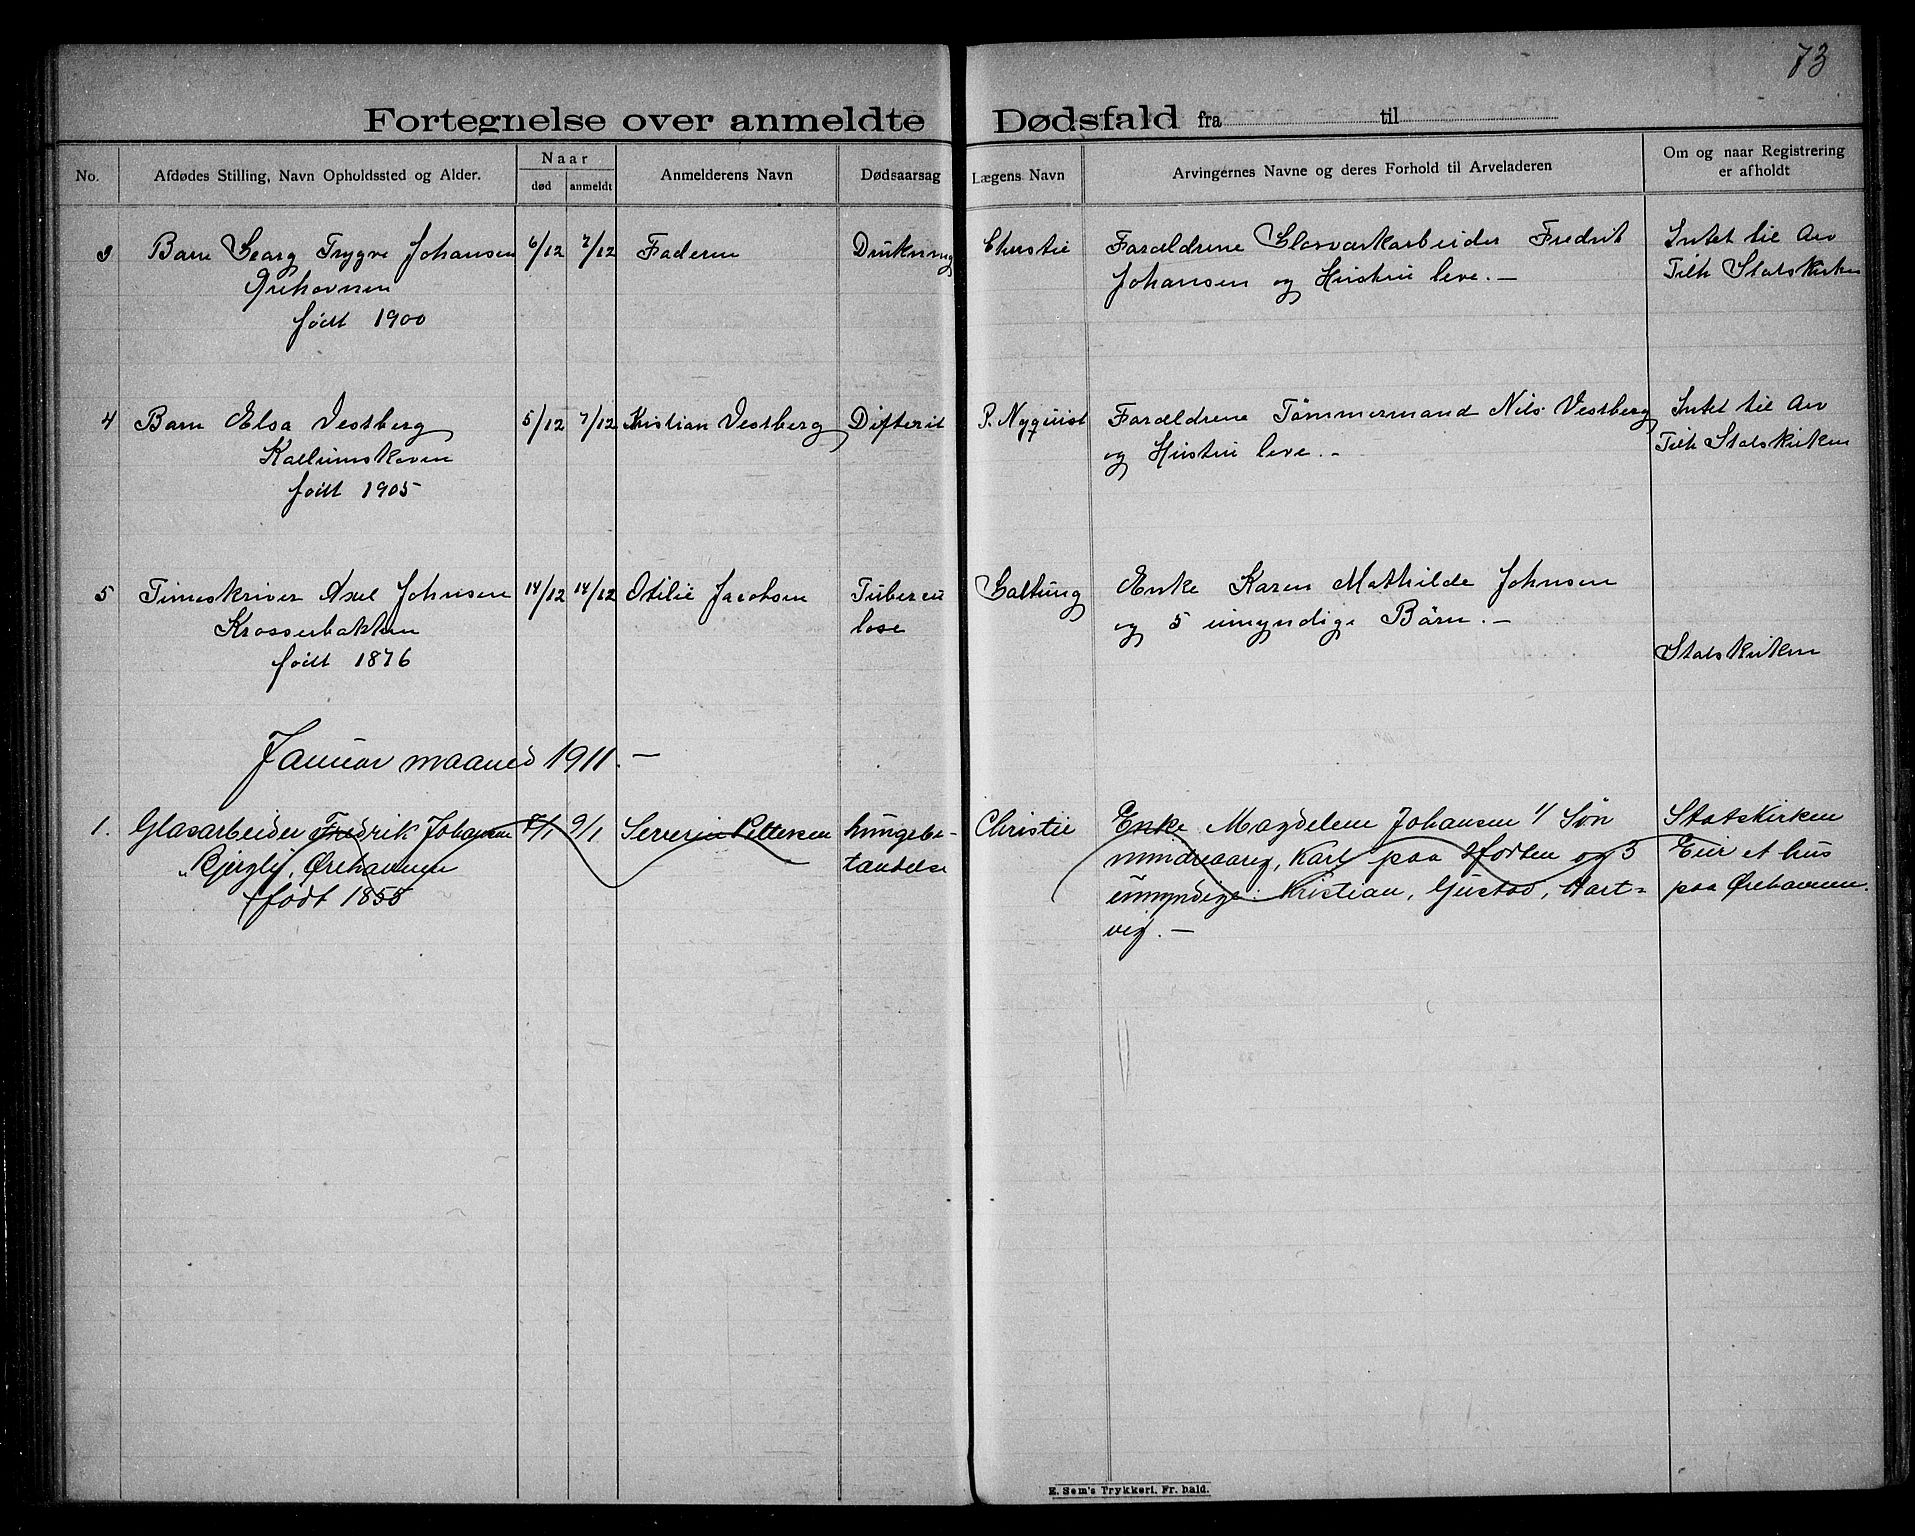 73
Fortegnelse over anmeldte Dødsfald fra til
No.
Afdødes Stilling, Navn Opholdssted og Alder.
Naar
død anmeldt
Anmelderens Navn
Dødsaarsag
Lægens Navn
Arvingernes Navne og deres Forhold til Arveladeren
Om og naar Registrering
er afholdt
3 Barn Georg Trygve Johansen 6/12 7/12 Faderen Drukning Christie Forældrene Glasværkarbeider Fredrik Intet til Arv
Ørehavnen Johansen og Hustru leve.— Tilh Statskirken
født 1900
4 Barn Elsa Vestberg 5/12 7/12 Kristian Vestberg Difterit P. Nyquist Forældrene Tømmermand Nils Vestberg Intet til Arv
Kallumskoven og Hustru leve.— Tilh Statskirken
født 1905
5 Timeskriver Axel Johnsen 14/12 14/12 Otilie Jacobsen Tubercu Galtung Enke Karen Mathilde Johnsen
Krosserbakken lose og 5 umyndige Børn.—
født 1876 Statskirken
Januar maaned 1911.—
1. Glasarbeider Fredrik Johansen 8/1 9/1 Severin Pettersen lungebe- Christie Enke Magdelene Johansen 1/ Søn Statskirken
Bjerglij, Ørehavnen tændelse mindreaarig, Karl paa Horten og 3 Eier et hus
født 1858 umyndige: Kristian, Gustav, Hart= paa Ørehavnen.
vig.—
E. Sem's Trykkeri. Fr. hald.